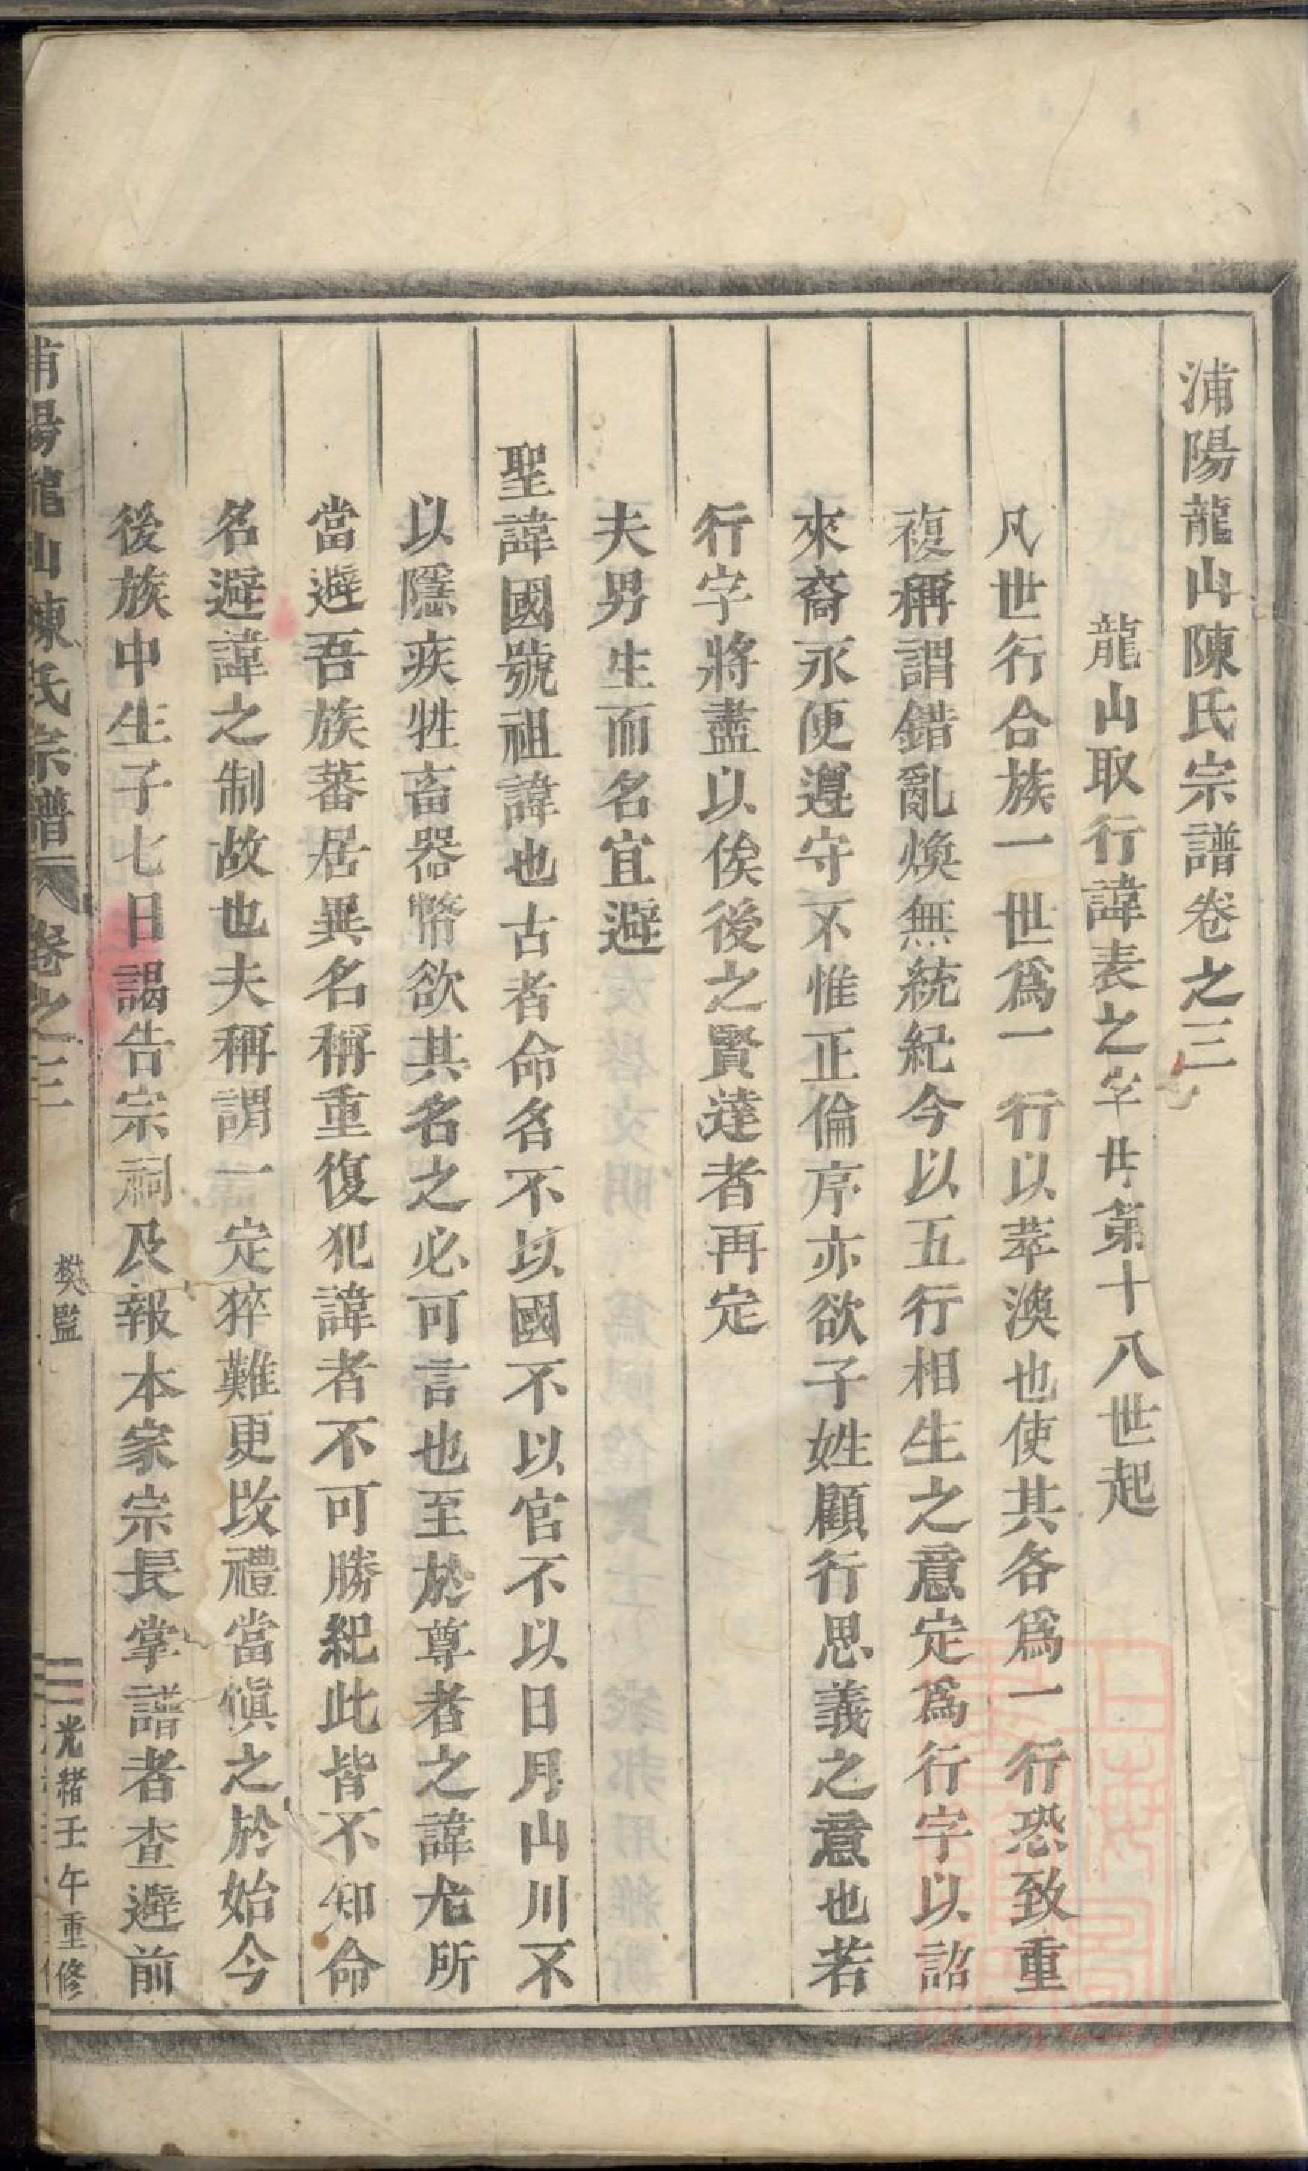 浦陽龍山陳氏宗譜卷之三
龍山取行諱表之字廿第十八世起
凡世行合族一世爲一行以萃渙也使其各爲一行恐致重
複稱謂錯亂煥無統紀今以五行相生之意定爲行字以詔
來裔永便遵守不惟正倫序亦欲子姓顧行思義之意也若
行字將盡以俟後之賢達者再定
夫男生而名宜避
聖諱國號祖諱也古者命名不以國不以官不以日月山川不
以隱疾牲畜器幣欲其名之必可言也至於尊者之諱尤所
當避吾族蕃居異名稱重復犯諱者不可勝紀此皆不知命
名避諱之制故也夫稱謂一定猝難更改禮當愼之於始今
後族中生子七日謁告宗祠及報本家宗長掌譜者查避前
浦陽龍山陳氏宗譜 卷之三 樊監 光緒壬午重修